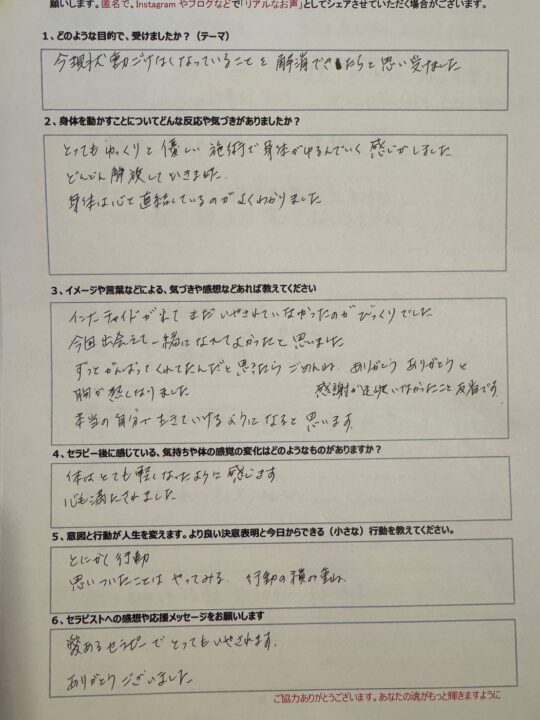 願いします。匿名で、Instagram やブログなどで「リアルなお声」としてシェアさせていただく場合がございます。
1、どのような目的で、受けましたか？（テーマ）
今現状動けなくなっていることを解消できたらと思い受けました
2、身体を動かすことについてどんな反応や気づきがありましたか？
とってもゆっくりと優しい施術で身体がゆるんでいく感じがしました
どんどん解放していきました。
身体は心と直結しているのがよくわかりました
3、イメージや言葉などによる、気づきや感想などあれば教えてください
インナーチャイルドが出て来てまだいやされていなかったのがびっくりでした
今回出会えて一緒になれてよかったと思いました
ずっとがんばってくれてたんだと思ったらごめんね、ありがとうありがとうと
胸が熱くなりました 感謝が足りていなかったこと反省です
本当の自分で生きていけるようになると思います。
4、セラピー後に感じている、気持ちや体の感覚の変化はどのようなものがありますか？
体はとても軽くなったように感じます
心も満たされました
5、意図と行動が人生を変えます。より良い決意表明と今日からできる（小さな）行動を教えてください。
とにかく行動
思いついたことはやってみる、行動の積み重ね
6、セラピストへの感想や応援メッセージをお願いします
愛あるセラピーでとってもいやされます。
ありがとうございました。
ご協力ありがとうございます。あなたの魂がもっと輝きますように